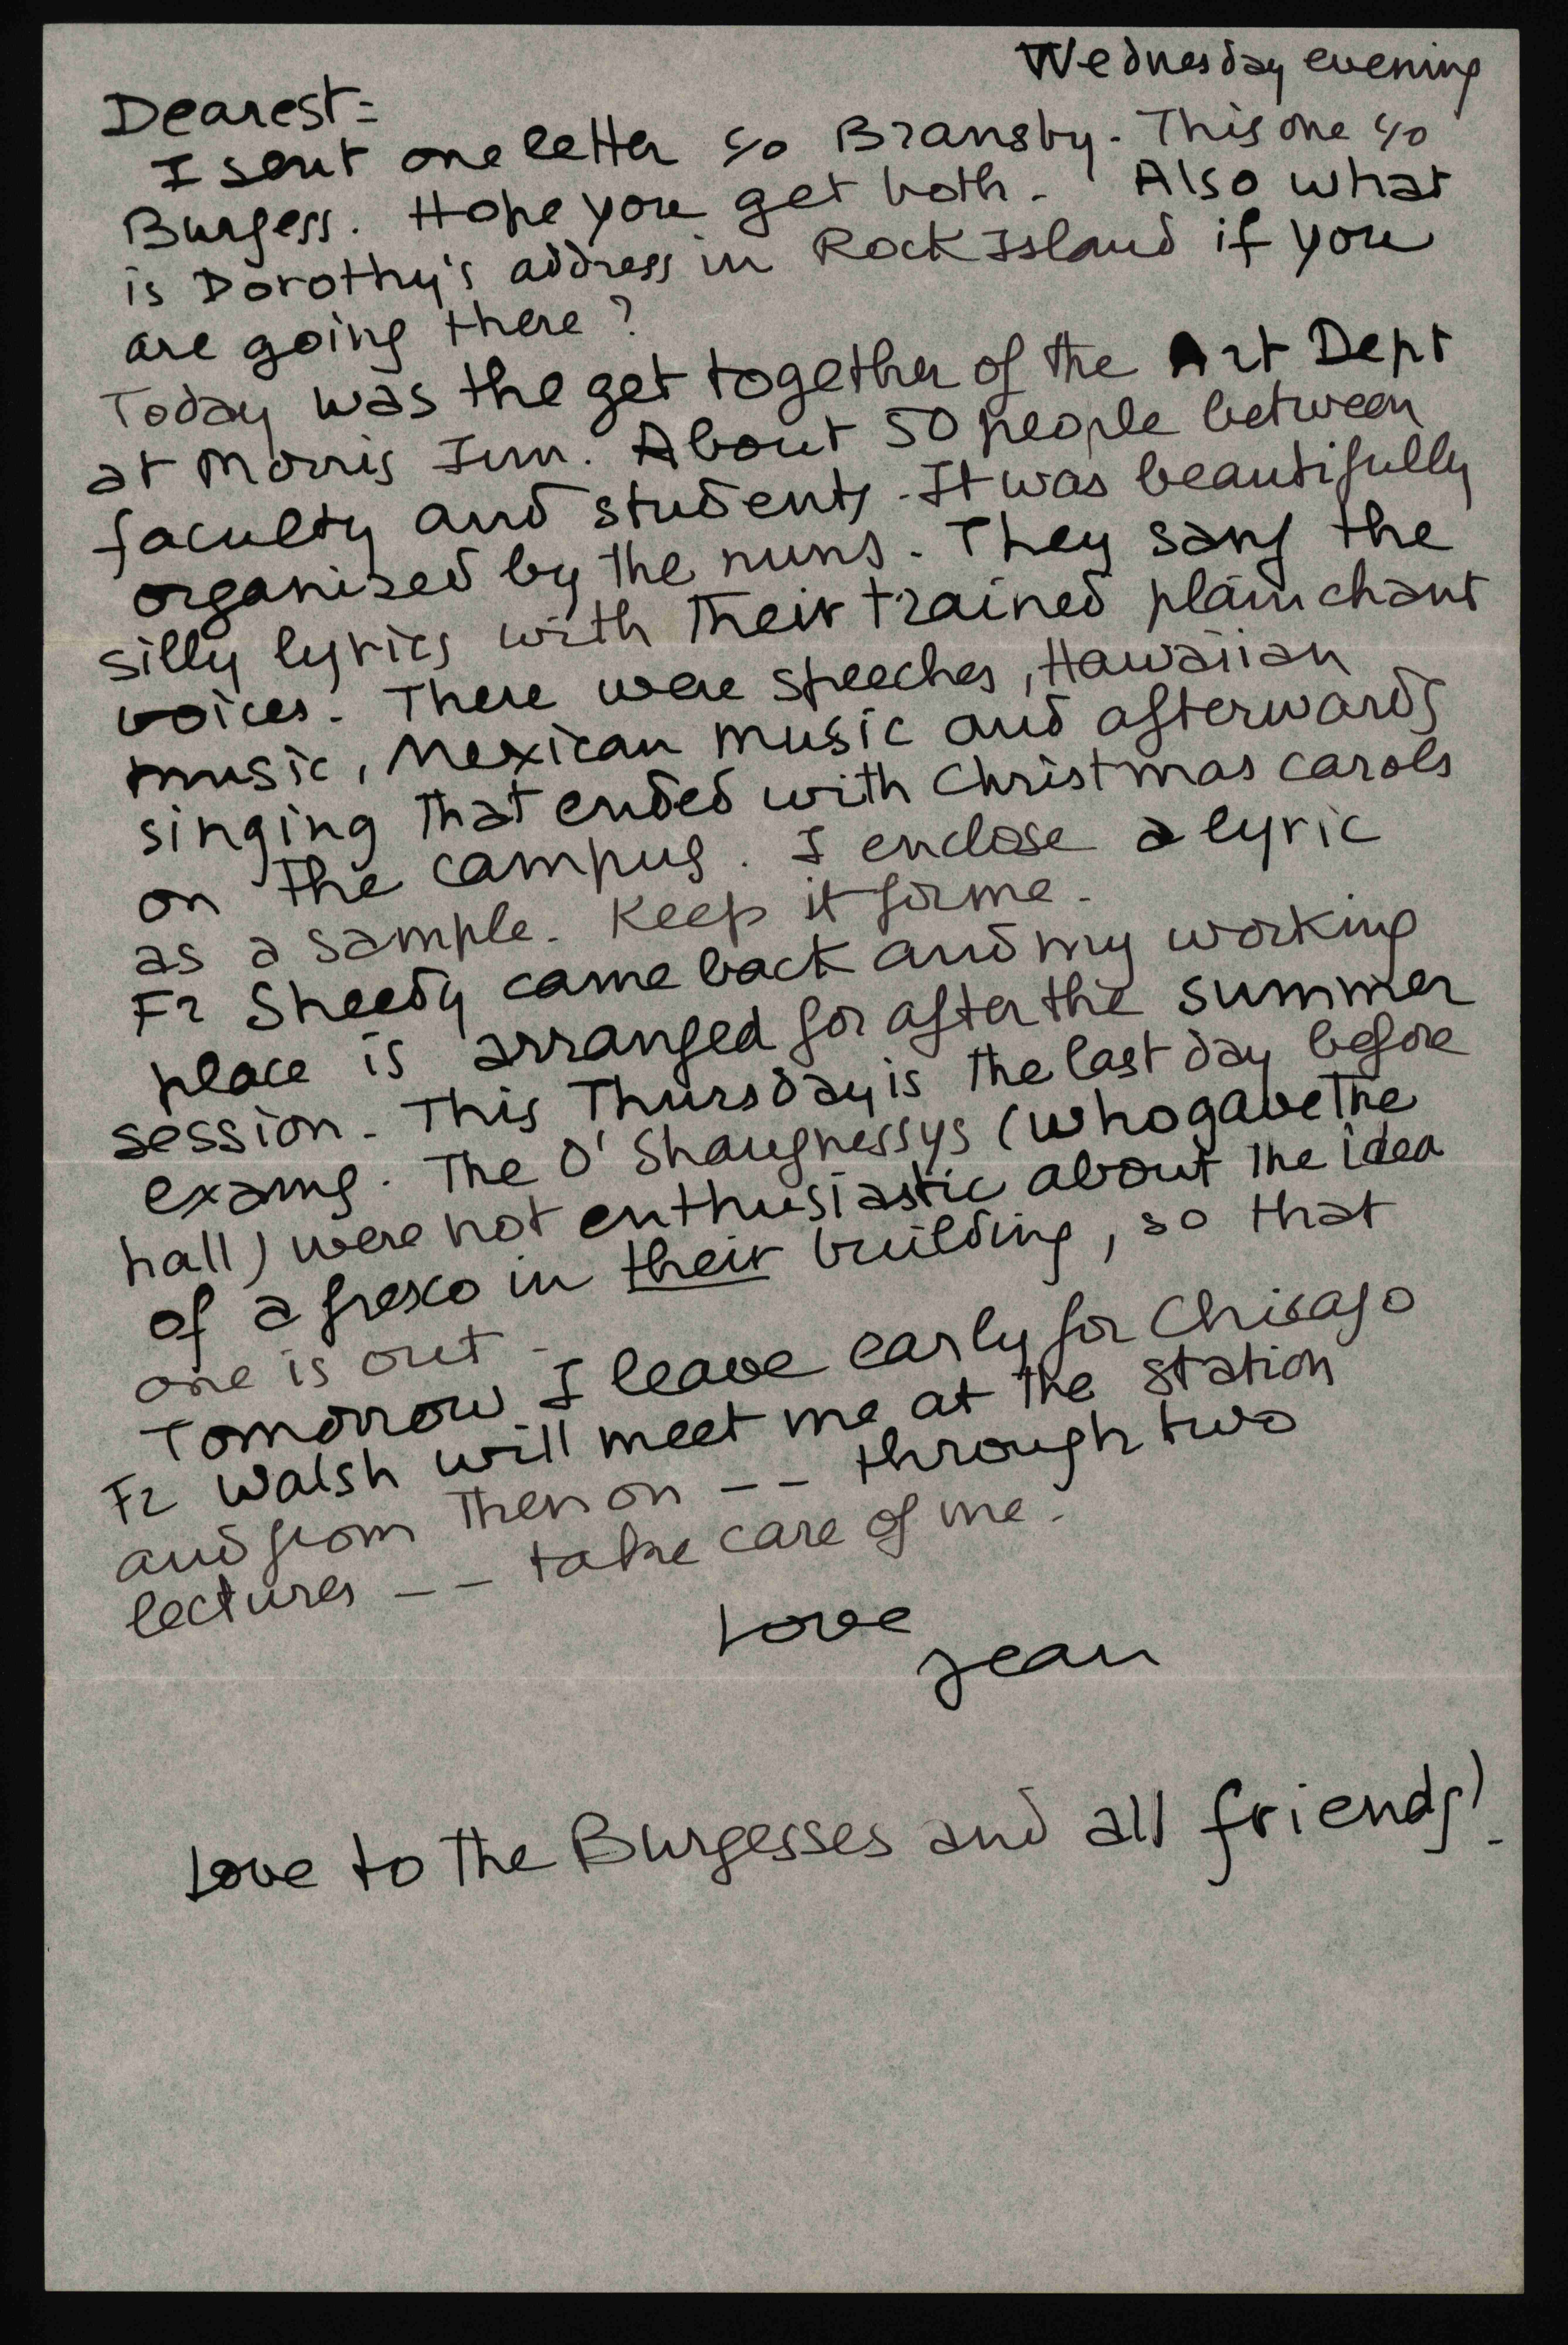 Wednesday evening
Dearest=
I sent one letter c/o Bransby. This one c/o
Burgess. Hope you get both. Also what
is Dorothy's address in Rock Island if you
are going there?
Today was the get together of the Art Dept
at Morris Inn. About 50 people between
faculty and students. It was beautifully
organized by the nuns. They sang the
silly lyrics with their trained plain chant
voices. There were speeches, Hawaiian
music, Mexican music and afterwards
singing that ended with Christmas carols
on the campus. I enclose a lyric
as a sample. Keep it for me.
Fr Sheedy came back and my working
place is arranged for after the summer
session. This Thursday is the last day before
exams. The O'Shaugnessys (who gave the
hall) were not enthusiastic about the idea
of a fresco in their building, so that
one is out.
Tomorrow I leave early for Chicago
Fr Walsh will meet me at the station
and from then on -- through two
lectures -- take care of me.
Love
Jean
Love to the Burgesses and all friends!